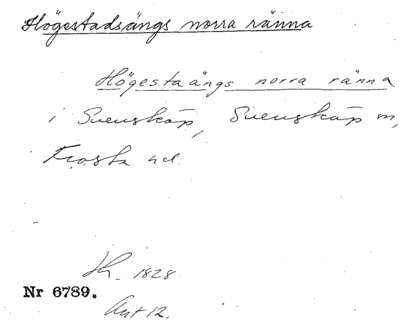 Högestadsängs norra ränna
Högestaängs norra ränna
i Svensköp, Svensköp sn,
Frosta hd.
Lh. 1828
Nr 6789.
Akt 12.